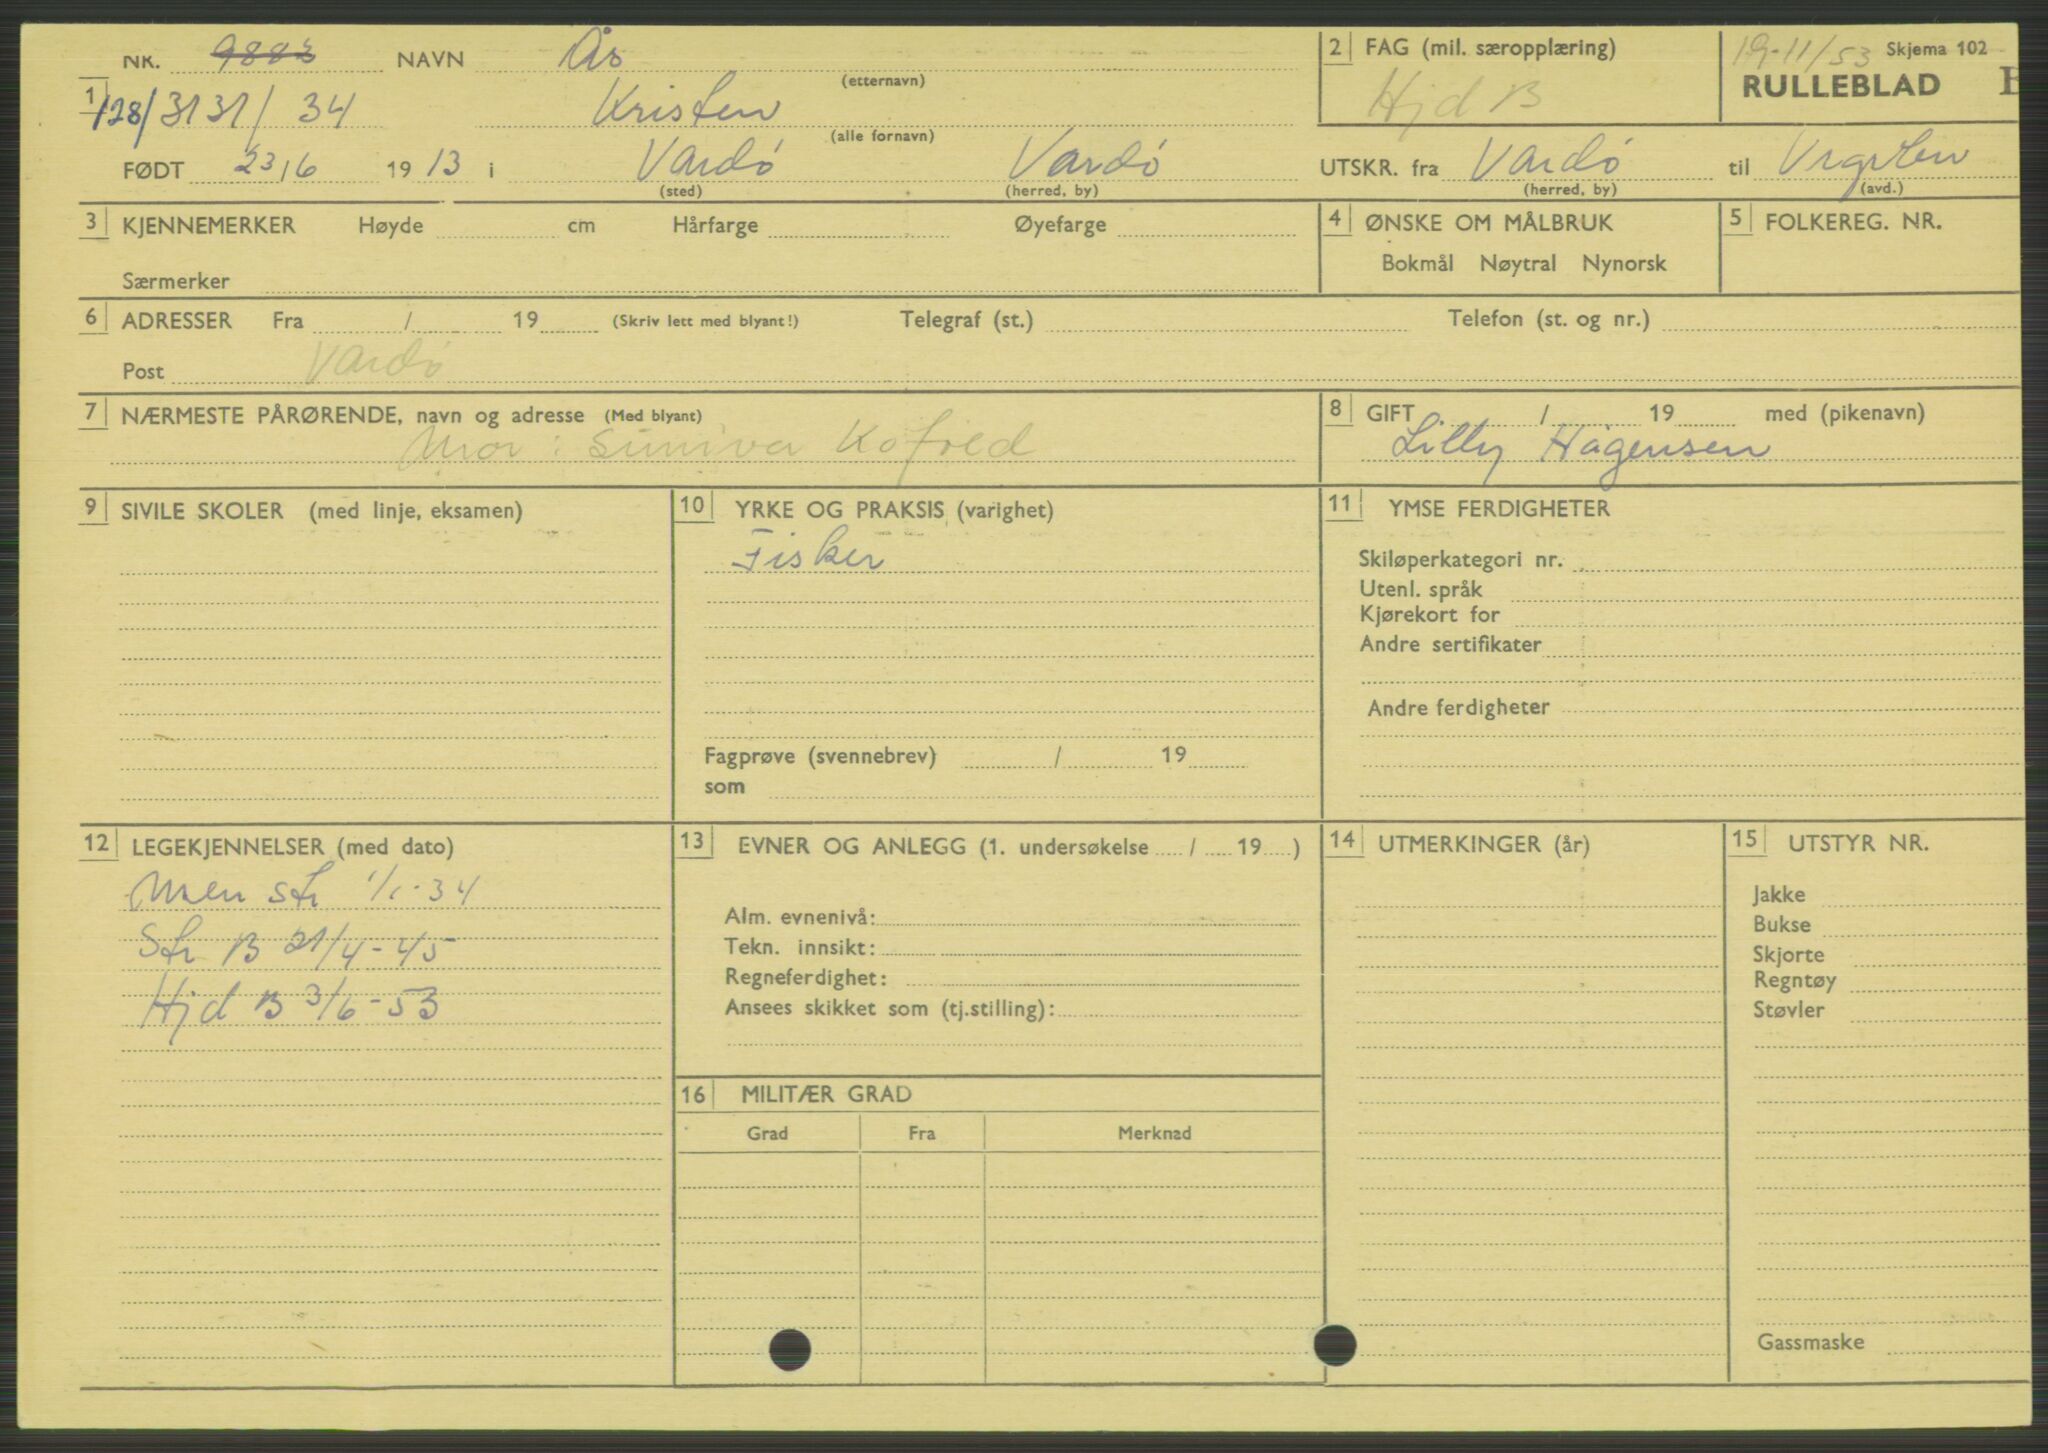 NR. 9803 NAVN Ås
(etternavn)
1 128/3131/34 Kristen
(alle fornavn)
FØDT 23/6 1913 i Vardø Vardø
(sted) (herred, by)
2 FAG (mil. særopplæring)
Hjd B
19-11/53 Skjema 102
RULLEBLAD
UTSKR. fra Vardø til
(herred, by) (avd.)
3 KJENNEMERKER Høyde cm Hårfarge Øyefarge
Særmerker
4 ØNSKE OM MÅLBRUK
Bokmål Nøytral Nynorsk
5 FOLKEREG. NR.
6 ADRESSER Fra / 19 (Skriv lett med blyant!) Telegraf (st.) Telefon (st. og nr.)
Post Vardø
7 NÆRMESTE PÅRØRENDE, navn og adresse (Med blyant)
Mor: Suniva Kofoed
8 GIFT / 19 med (pikenavn)
Lilly Hågensen
9 SIVILE SKOLER (med linje, eksamen)
10 YRKE OG PRAKSIS (varighet)
Fisker
Fagprøve (svennebrev) / 19
som
11 YMSE FERDIGHETER
Skiløperkategori nr.
Utenl. språk
Kjørekort for
Andre sertifikater
Andre ferdigheter
12 LEGEKJENNELSER (med dato)
Men str 1/1-34
Str B 21/4-45
Hjd B 3/6-53
13 EVNER OG ANLEGG (1. undersøkelse / 19 )
Alm. evnenivå:
Tekn. innsikt:
Regneferdighet:
Ansees skikket som (tj.stilling):
14 UTMERKINGER (år)
15 UTSTYR NR.
Jakke
Bukse
Skjorte
Regntøy
Støvler
Gassmaske
16 MILITÆR GRAD
Grad Fra Merknad